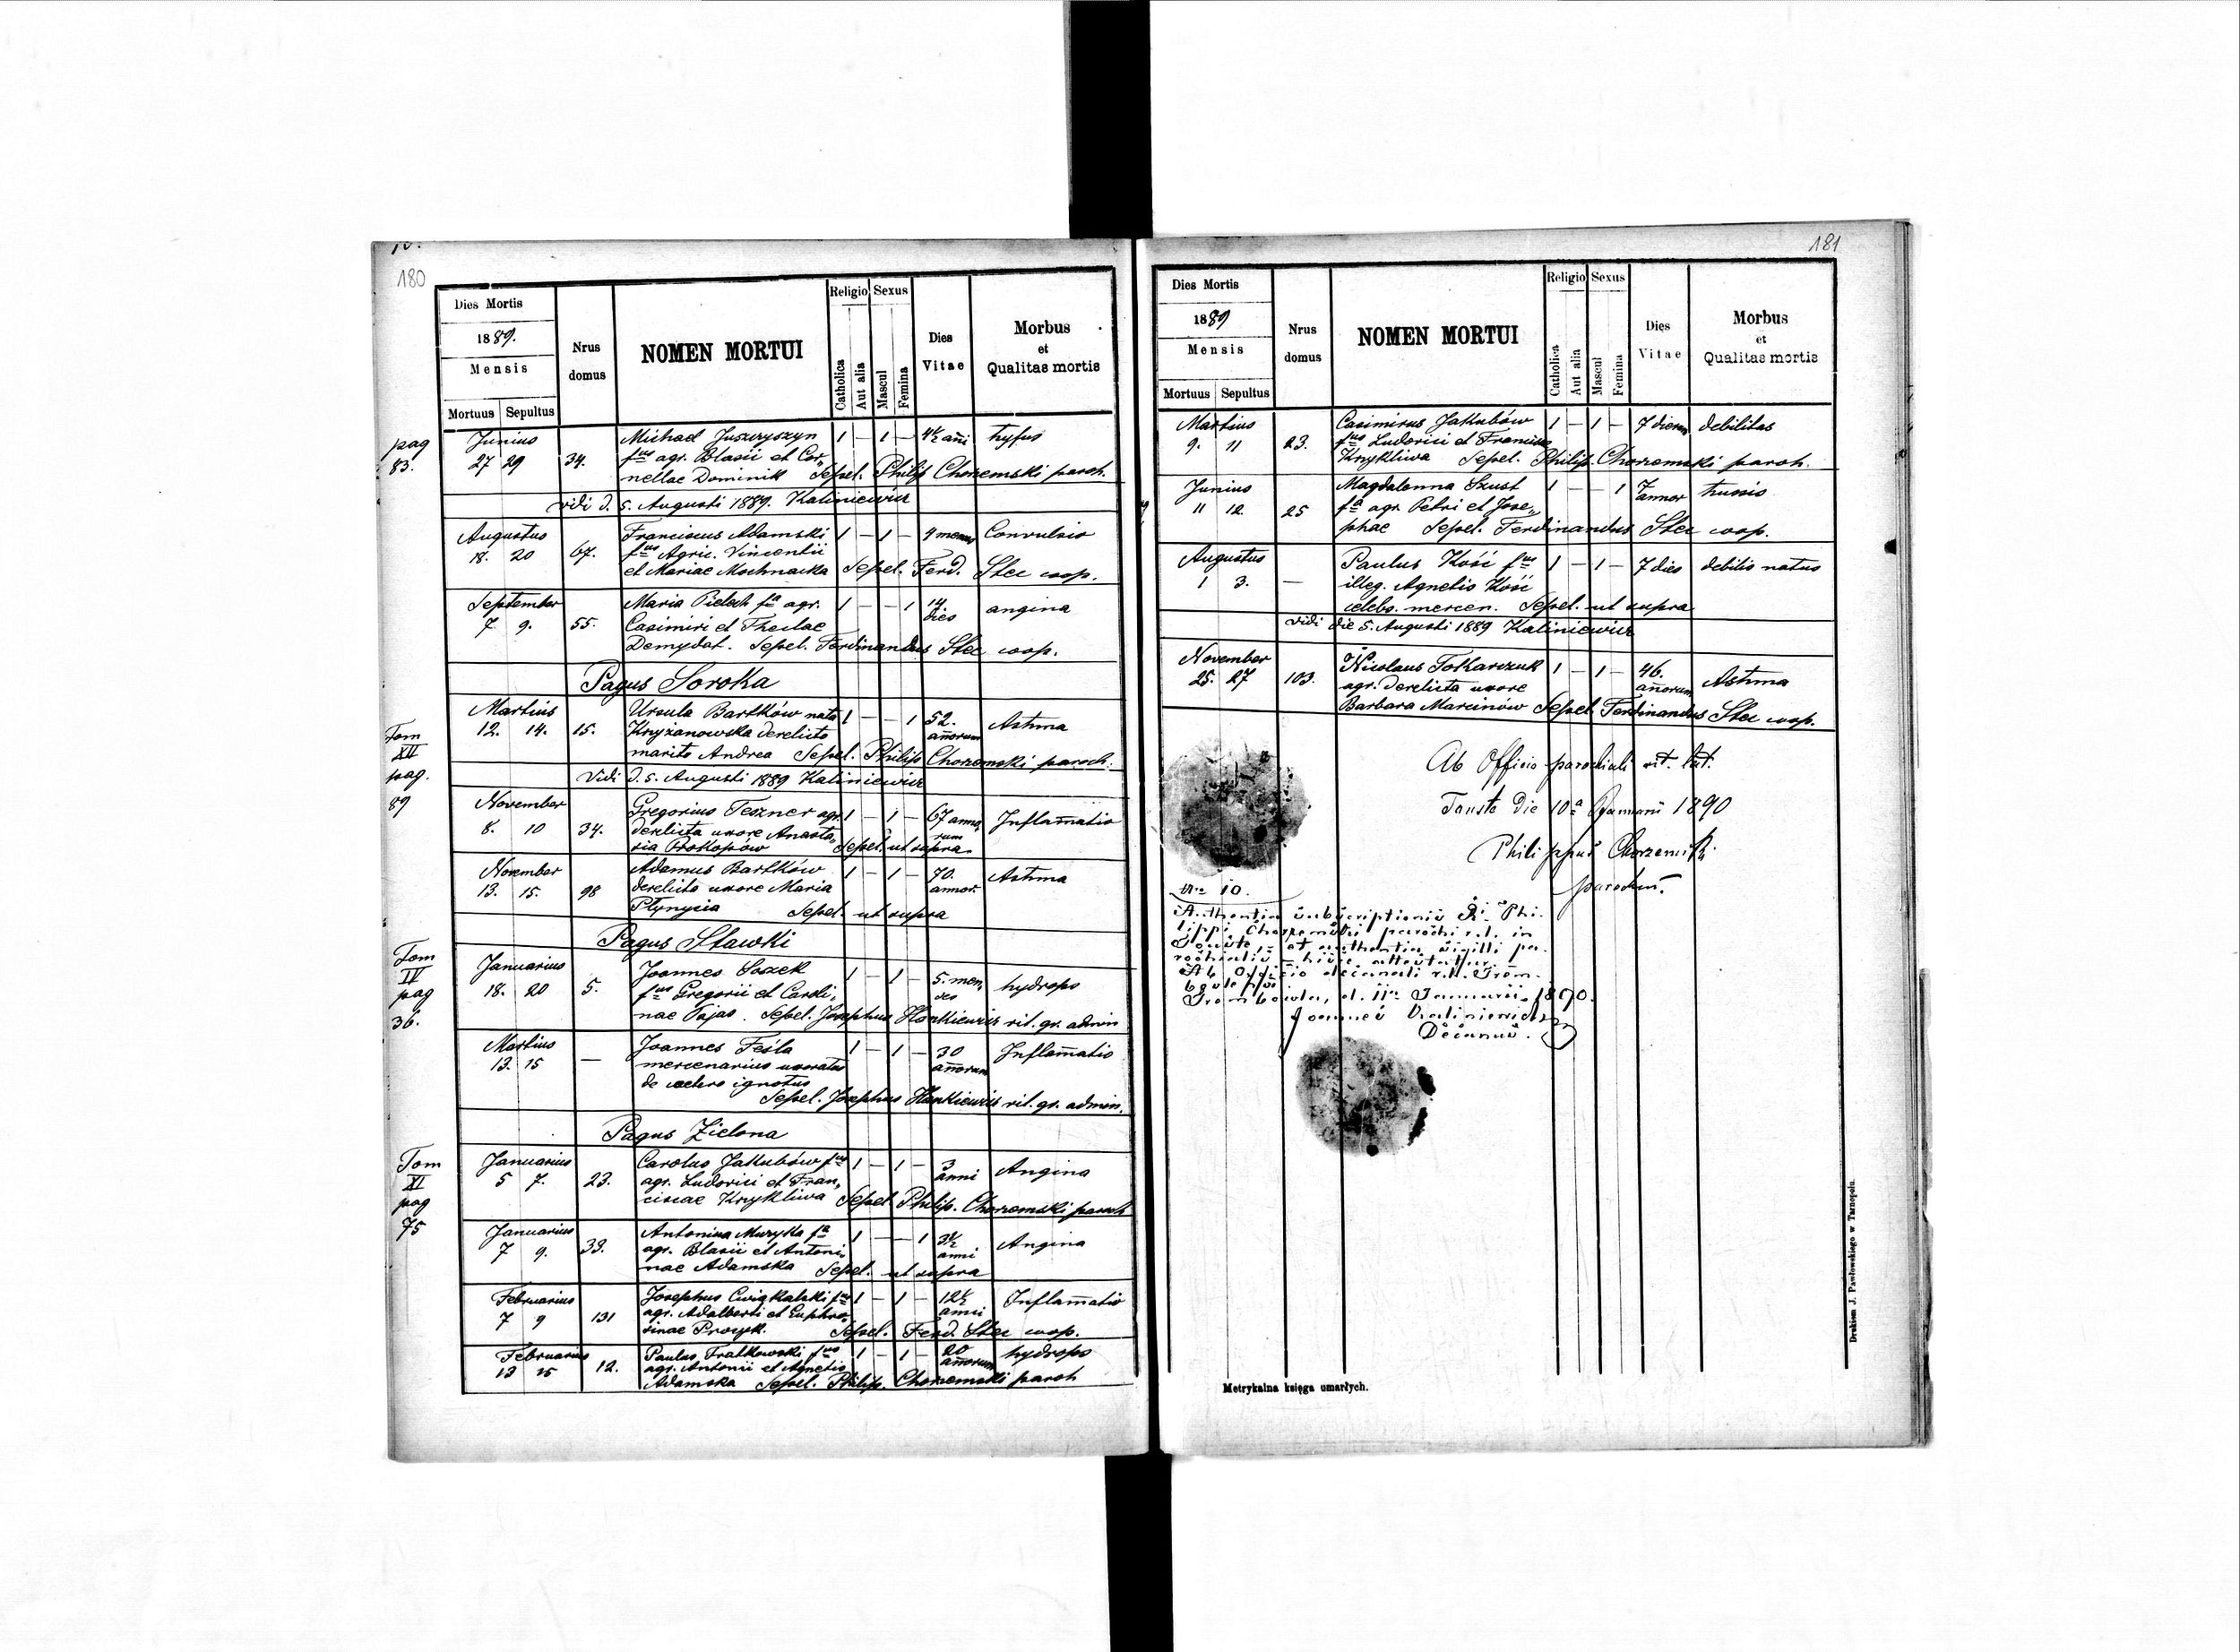 180
Dies Mortis
1889.
Mensis
Mortuus Sepultus
Nrus domus
NOMEN MORTUI
Religio Sexus
Catholica Aut alia Mascul Femina
Dies Vitae
Morbus et Qualitas mortis
pag 83.
Junius 27 29 34.
Michael Juszczyszyn 1 — 1 — 4½ añi tyfus
fus agr. Blasii et Cor„
nellae Dominik Sepel. Philip Chorzemski paroh.
vidi d. 5. Augusti 1889. Kaliniewicz
Augustus 18. 20 67.
Franciscus Adamski 1 — 1 — 4 menses Convulsio
fus Agric. Vincentii
et Mariae Mochnacka Sepel. Ferd. Stec coop.
September 7. 9. 55.
Maria Pielech fa agr. 1 — — 1 14. dies angina
Casimiri et Theclae
Demydat. Sepel. Ferdinandus Stec coop.
Pagus Soroka
Tom XII pag. 89
Martius 12. 14. 15.
Ursula Bartków nata 1 — — 1 52. añorum Astma
Kryżanowska derelicto
marito Andrea Sepel. Philip Chorzemski paroch.
Vidi d. 5. Augusti 1889 Kaliniewicz
November 8. 10 34.
Gregorius Teszner agr. 1 — 1 — 67 anno„rum Inflam̄atio
derelicta uxore Anasta„
sia Prokopów Sepel. ut supra
November 13. 15. 98
Adamus Bartków 1 — 1 — 70. annor. Astma
derelicto uxore Maria
Płynycia Sepel. ut supra
Pagus Sławki
Tom IV pag 36.
Januarius 18. 20 5.
Joannes Soszek 1 — 1 — 5. men„ses hydrops
fus Gregorii et Caroli„
nae Pajas. Sepel. Josephus Hankiewicz rit. gr. admin
Martius 13. 15 —
Joannes Feśla 1 — 1 — 30 añorum Inflam̄atio
mercenarius uxoratus
de caetero ignotus
Sepel. Josephus Hankiewicz rit. gr. admin.
Pagus Zielona
Tom XI pag 75
Januarius 5 7. 23.
Carolus Jakubów fus 1 — 1 — 3 anni Angina
agr. Ludovici et Fran„
ciscae Krykliwa Sepel. Philip. Chorzemski paroch
Januarius 7 9. 33.
Antonina Muzyka fa 1 — — 1 3½ anni Angina
agr. Blasii et Antoni„
nae Adamska Sepel. ut supra
Februarius 7 9 131
Josephus Cwiąkalski fus 1 — 1 — 12½ anni Inflam̄atio
agr. Adalberti et Euphro„
sinae Procyk. Sepel. Ferd. Stec coop.
Februarius 13 15 12.
Paulus Fralkowski fus 1 — 1 — 20 añorum hydrops
agr. Antonii et Agnetis
Adamska Sepel. Philip. Chorzemski paroh
181
Dies Mortis
1889
Mensis
Mortuus Sepultus
Nrus domus
NOMEN MORTUI
Religio Sexus
Catholica Aut alia Mascul Femina
Dies Vitae
Morbus et Qualitas mortis
Martius 9. 11 23.
Casimirus Jakubów 1 — 1 — 7 dierum debilitas
fus Ludovici et Francisca
Krykliwa Sepel. Philip. Chorzemski paroh.
Junius 11 12. 25
Magdalenna Szust 1 — — 1 7 annor tussis
fa agr. Petri et Jose„
phae Sepel. Ferdinandus Stec coop.
Augustus 1 3. —
Paulus Kość fus 1 — 1 — 7 dies debilis natus
illeg. Agnetis Kość
celebs. mercen. Sepel. ut supra
vidi die 5. Augusti 1889 Kaliniewicz
November 25. 27 103.
Nicolaus Tokarczuk 1 — 1 — 46. añorum Astma
agr. derelicta uxore
Barbara Marcinów Sepel. Ferdinandus Stec coop.
Ab Officio parochiali rit. lat.
Touste Die 10a Januarii 1890
Philippus Chorzemski
parochus.
Nro 10.
Authentia subscriptionis R. Phi-
lippi Chorzemski parochi r. l. in
Touste, et authentia sigilli pa-
rochialis hisce attestatur.
Ab Officio decanali r. l. Trem-
bovlensi
Trembowla, d. 11a Januarii 1890.
Joannes Kaliniewicz
Decanus.
Metrykalna księga umarłych.
Drukiem J. Pawłowskiego w Tarnopolu.